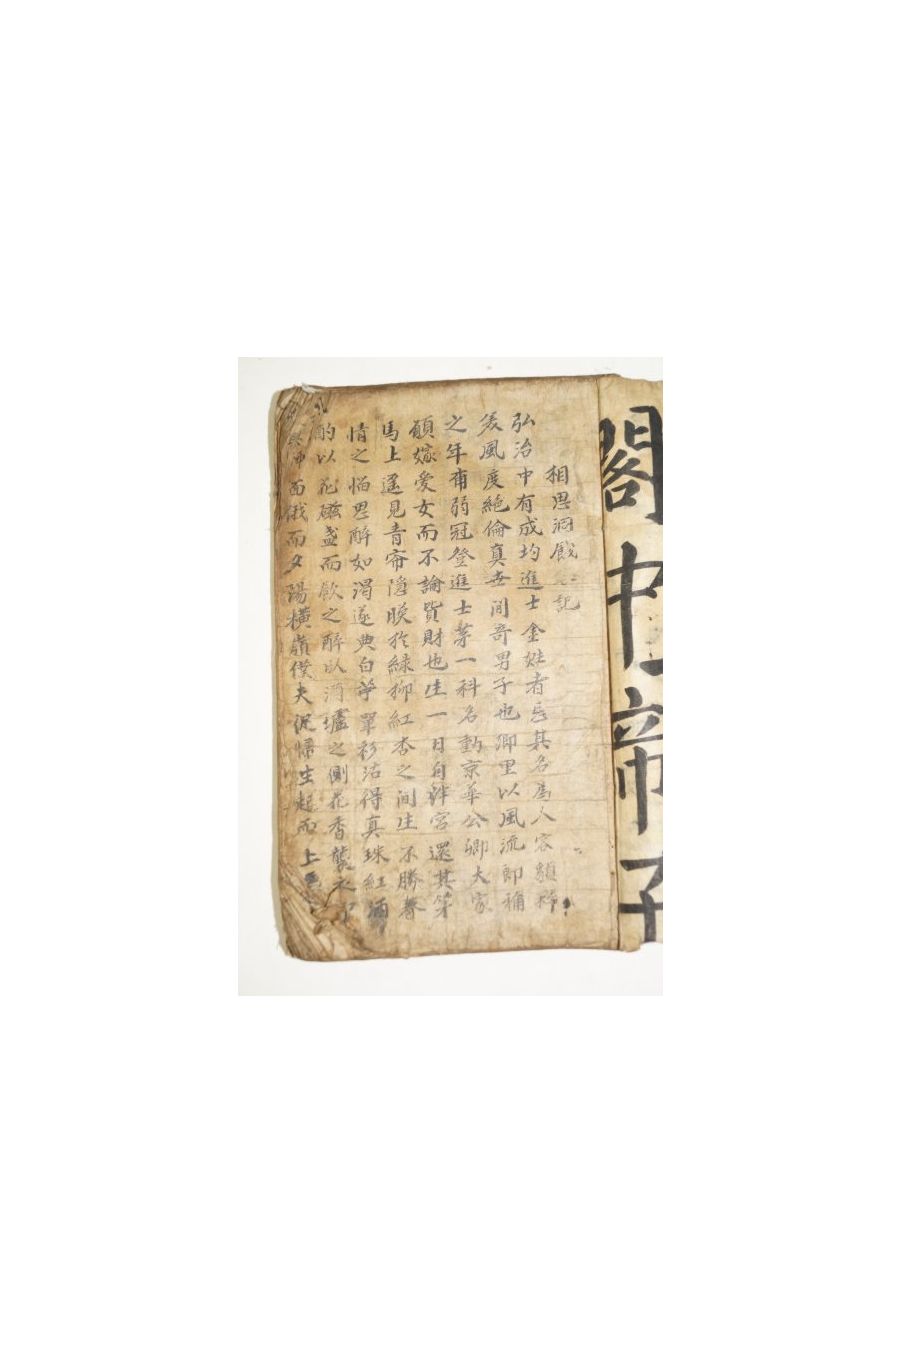 閣中帝子
相思洞餞客記
弘治中有成均進士金姓者忘其名爲人容貌粹
美風度絶倫真世間奇男子也鄉里以風流郎稱
之年甫弱冠登進士第一科名動京華公卿大家
願嫁愛女而不論貲財也生一日自泮宮還其第
馬上遙見青帘隱映於綠柳紅杏之間生不勝春
情之惱思醉如渴遂典白苧單衫沽得真珠紅酒
酌以花磁盞而飲之醉臥酒壚之側花香襲衣
面俄而夕陽橫嶺僕夫促歸生起而上馬